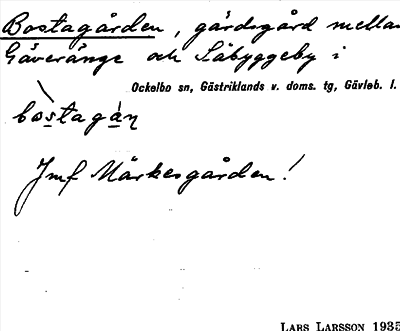 Bostagården, gärdsgård mellan
Gäveränge och Låbyggeby i
Ockelbo sn, Gästriklands v. doms. tg, Gävleb. l.
bòstagàn
Jmf Märkesgården!
LARS LARSSON 1935